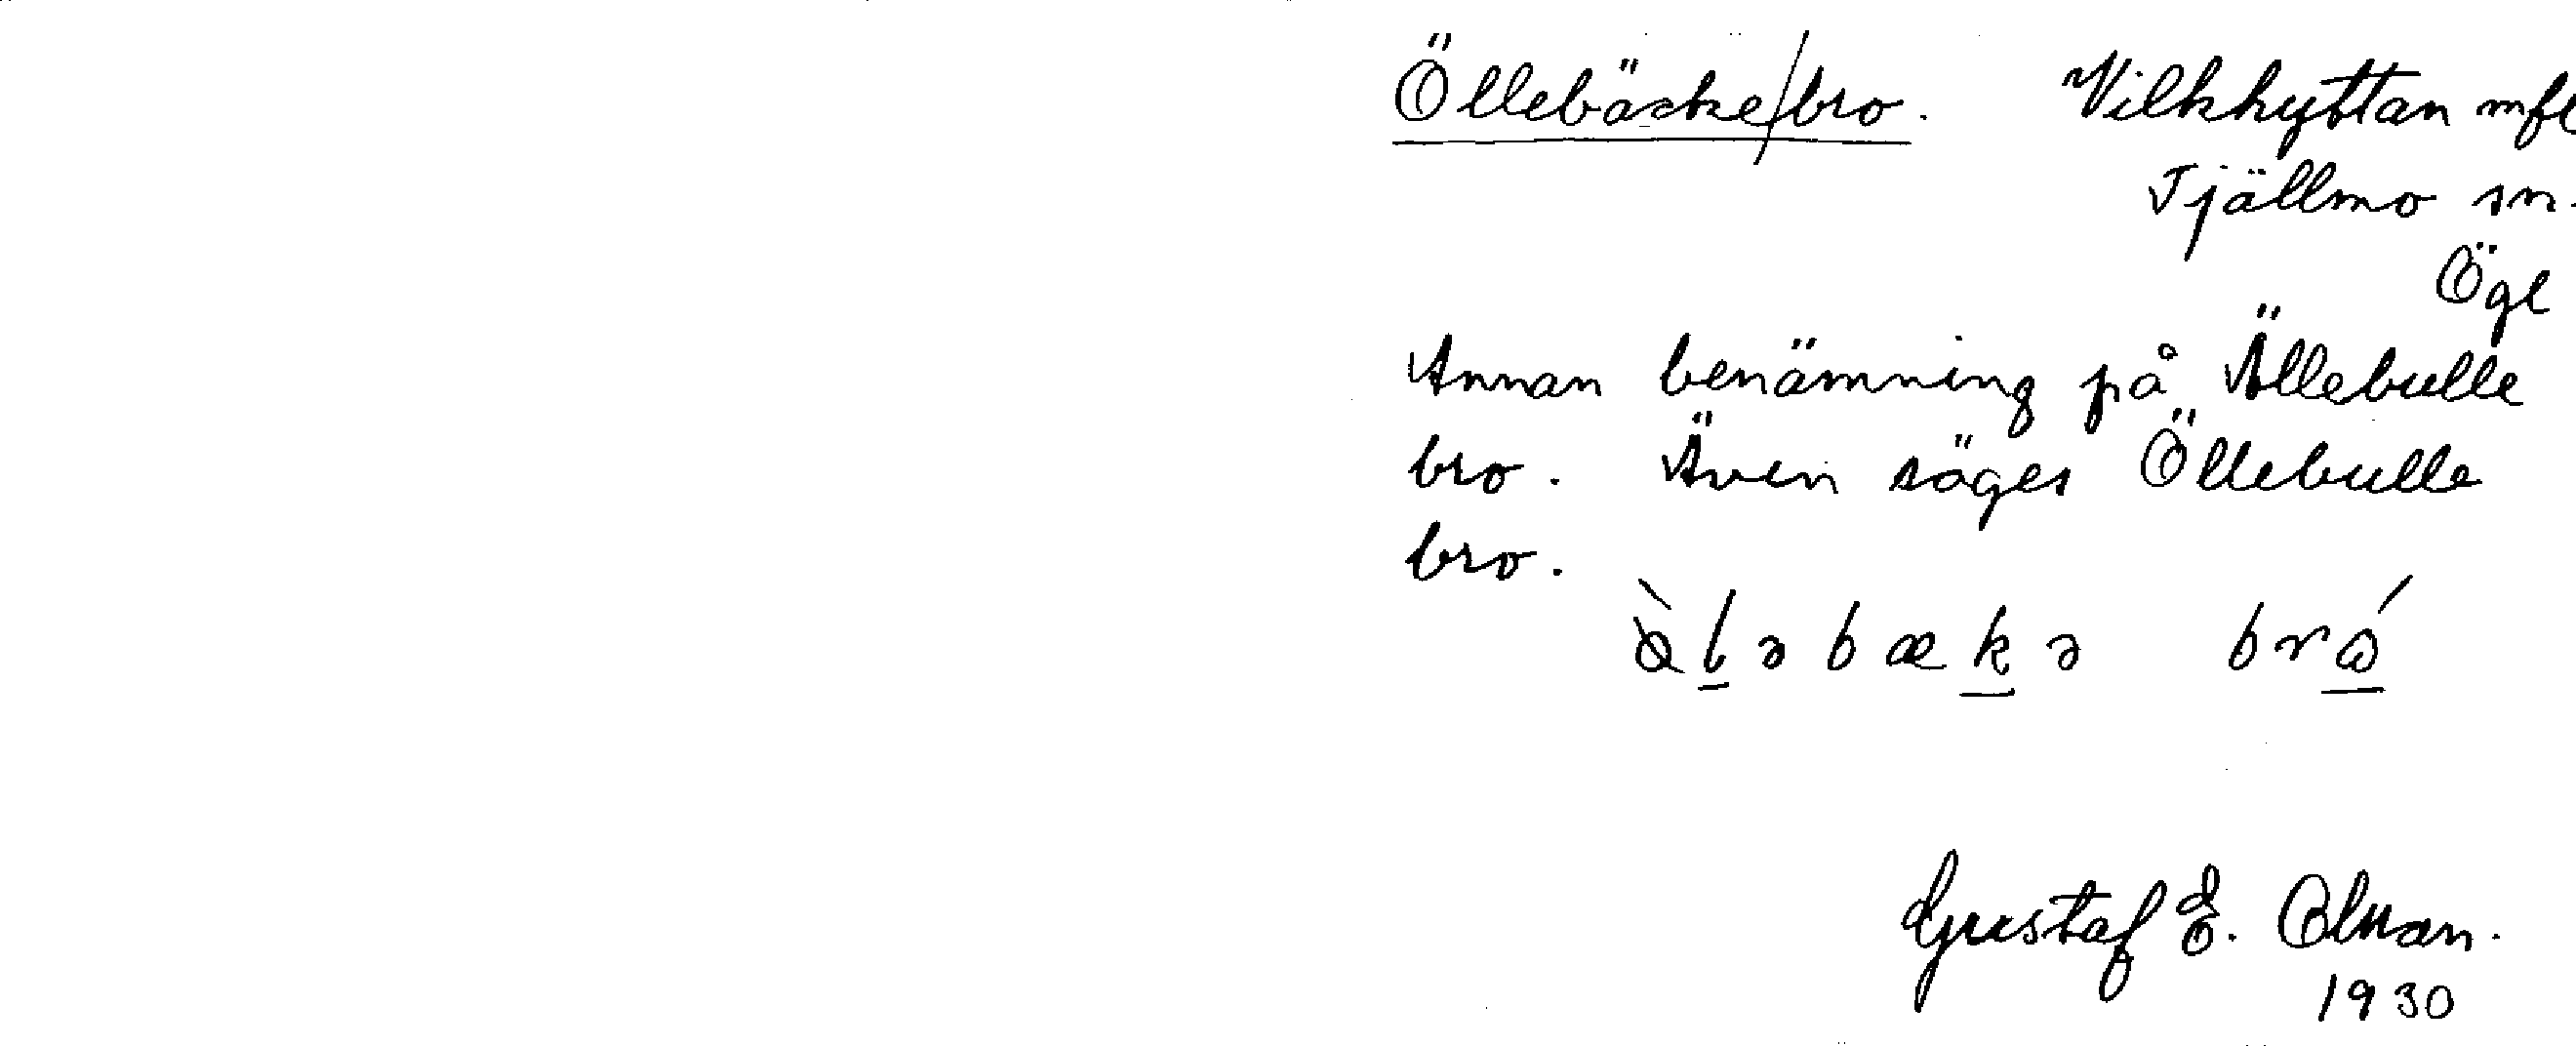 Öllebäcke/bro. Vilkhyttan mfl
Tjällmo sn.
Ögl
Annan benämning på Ällebulle
bro. Även säges Öllebulle
bro.
bro
Gustaf E.
1930